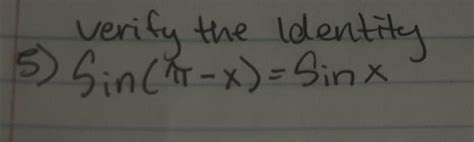 verify the Identity
5) Sin(π-x)=Sin x